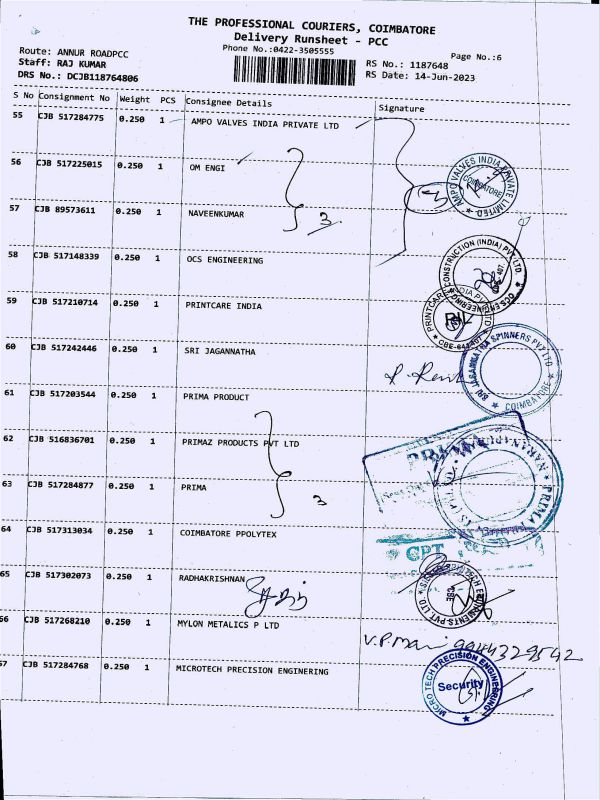 THE PROFESSIONAL COURIERS, COIMBATORE
Delivery Runsheet - PCC
Phone No.:0422-3505555
Page No.:6
Route: ANNUR ROADPCC
Staff: RAJ KUMAR
DRS No.: DCJB118764806
RS No.: 1187648
RS Date: 14-Jun-2023
S No Consignment No Weight PCS Consignee Details Signature
55 CJB 517284775 0.250 1 AMPO VALVES INDIA PRIVATE LTD
56 CJB 517225015 0.250 1 OM ENGI
57 CJB 89573611 0.250 1 NAVEENKUMAR
3
3
AMPO VALVES INDIA PRIVATE LIMITED
COIMBATORE
58 CJB 517148339 0.250 1 OCS ENGINEERING
OCS ENGINEERING CONSTRUCTION (INDIA) PVT. LTD.
59 CJB 517210714 0.250 1 PRINTCARE INDIA
PRINTCARE INDIA PVT LTD
PIL
CBE-641407
60 CJB 517242446 0.250 1 SRI JAGANNATHA
SPINNERS PVT LTD
COIMBATORE
61 CJB 517203544 0.250 1 PRIMA PRODUCT
62 CJB 516836701 0.250 1 PRIMAZ PRODUCTS PVT LTD
63 CJB 517284877 0.250 1 PRIMA
3
64 CJB 517313034 0.250 1 COIMBATORE PPOLYTEX
CPT
65 CJB 517302073 0.250 1 RADHAKRISHNAN
66 CJB 517268210 0.250 1 MYLON METALICS P LTD
V.P. Mani 9944329542
57 CJB 517284768 0.250 1 MICROTECH PRECISION ENGINERING
MICRO TECH PRECISION ENGINEERING
Security